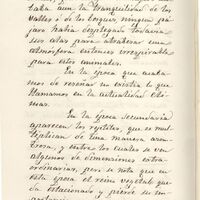 baba aun la tranquilidad de los
valles ó de los bosques, ningun pá-
jaro habia desplegado todavia
sus alas para atrabesar una
atmósfera entonces irrespirable
para estos animales.
En la época que acaba-
mos de reseñar no existia lo que
llamamos en la actualidad cli-
mas.
En la época secundaria
aparecen los reptiles, que se mul-
tiplican de una manera asom-
brosa, y entre los cuales se ven
algunos de dimensiones extra-
ordinarias, pero se nota que en
esta época el reino vegetal que-
da estacionado y pierde su im-
portancia